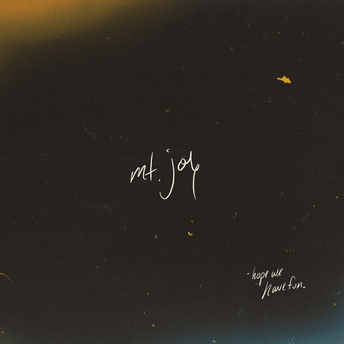 mt. joy
hope we
have fun.